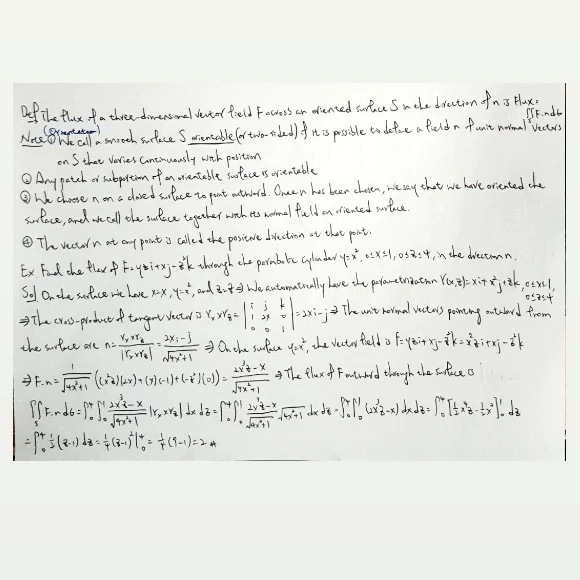 Def The flux of a three-dimensional vector field F across an oriented surface S in the direction of n is Flux= ∬_S F.n dσ
Note (Orientation) ① We call a smooth surface S orientable (or two-sided) if it is possible to define a field n of unit normal vectors
on S that varies continuously with position
② Any patch or subportion of an orientable surface is orientable
③ We choose n on a closed surface to point outward. Once n has been chosen, we say that we have oriented the
surface, and we call the surface together with its normal field an oriented surface.
④ The vector n at any point is called the positive direction at that point.
Ex. Find the flux of F=yzi+xj-z²k through the parabolic cylinder y=x², 0≤x≤1, 0≤z≤4, in the direction n.
Sol On the surface we have x=x, y=x², and z=z ⇒ We automatically have the parametrization r(x,z)=xi+x²j+zk, 0≤x≤1, 0≤z≤4
⇒ The cross-product of tangent vectors is r_x×r_z = |i j k; 1 2x 0; 0 0 1| = 2xi-j ⇒ The unit normal vectors pointing outward from
the surface are n= (r_x×r_z)/|r_x×r_z| = (2xi-j)/√(4x²+1) ⇒ On the surface y=x², the vector field is F=yzi+xj-z²k=x²zi+xj-z²k
⇒ F.n= 1/√(4x²+1) ((x²z)(2x)+(x)(-1)+(-z²)(0)) = (2x³z-x)/√(4x²+1) ⇒ The flux of F outward through the surface is
∬_S F.n dσ = ∫₀⁴∫₀¹ (2x³z-x)/√(4x²+1) |r_x×r_z| dx dz = ∫₀⁴∫₀¹ (2x³z-x)/√(4x²+1) √(4x²+1) dx dz = ∫₀⁴∫₀¹ (2x³z-x) dx dz = ∫₀⁴ [½x⁴z-½x²]₀¹ dz
= ∫₀⁴ ½(z-1) dz = ¼(z-1)²|₀⁴ = ¼(9-1) = 2